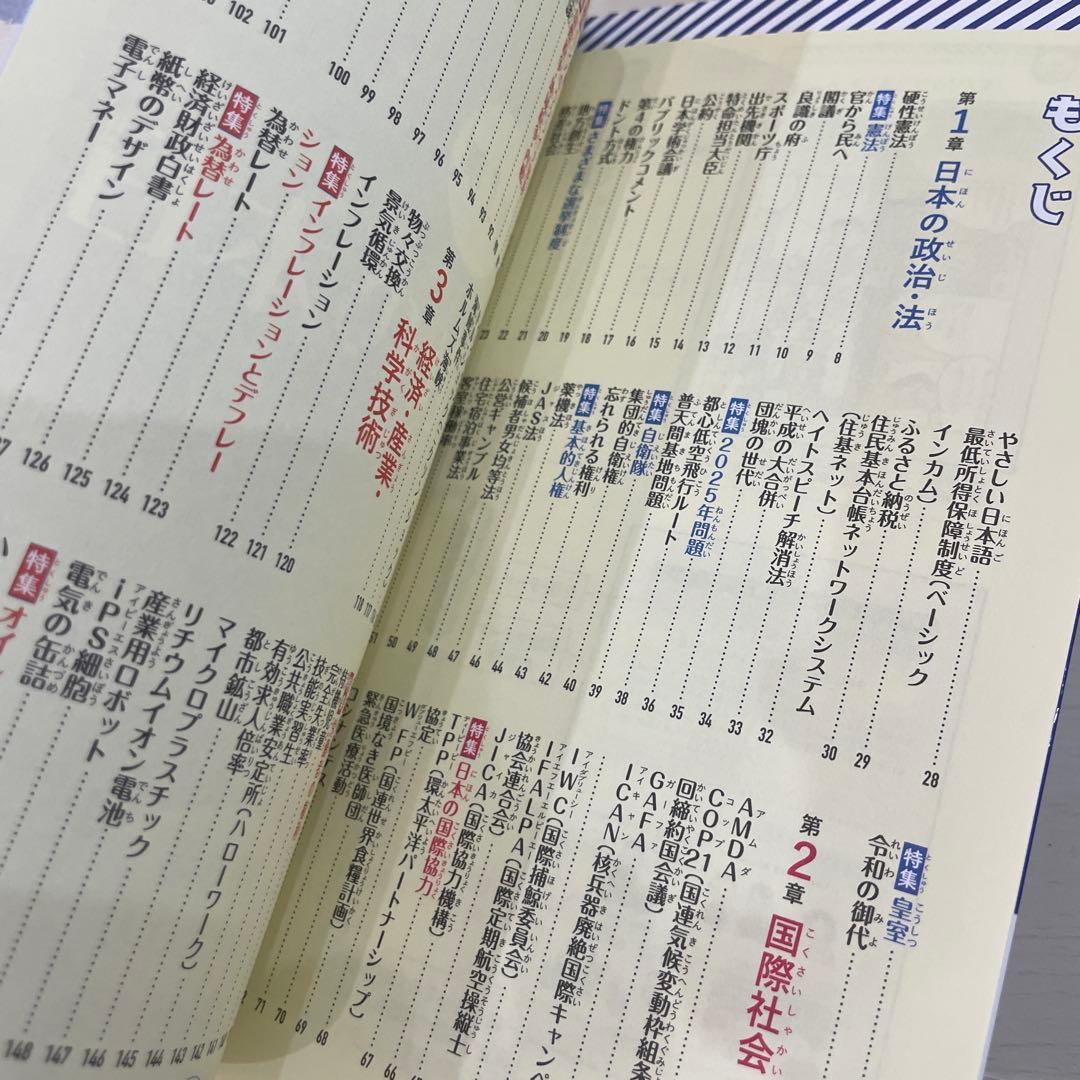 もくじ
第1章 日本の政治・法
硬性憲法 8
特集 憲法 9
官から民へ 10
閣議 11
良識の府 12
スポーツ庁 13
出先機関 14
特命担当大臣 15
公約 16
日本学術会議 17
パブリックコメント 18
第4の権力 19
ドント方式 20
特集 さまざまな選挙制度 21
地方創生 22
23
やさしい日本語 28
最低所得保障制度(ベーシック
インカム) 29
ふるさと納税 30
住民基本台帳ネットワークシステム
(住基ネット) 32
ヘイトスピーチ解消法 33
平成の大合併 34
団塊の世代 35
特集 2025年問題 36
都心低空飛行ルート 38
普天間基地問題 39
特集 自衛隊 40
集団的自衛権 42
忘れられる権利 43
特集 基本的人権 44
薬機法 46
JAS法 47
候補者男女均等法 48
公営ギャンブル 49
住宅宿泊事業法 50
51
特集 皇室
令和の御代
第2章 国際社会
AMDA
COP21(国連気候変動枠組条
回締約国会議)
GAFA
ICAN(核兵器廃絶国際キャンペ
IWC(国際捕鯨委員会)
IFALPA(国際定期航空操縦士
協会連合会) 66
JICA(国際協力機構) 67
特集 日本の国際協力 68
TPP(環太平洋パートナーシップ)
協定 69
WFP(国連世界食糧計画) 70
国境なき医師団 71
緊急医療活動
ホルムズ海峡
93
94
95
96
97
98
99
100
101
102
103
第3章 経済・産業・
科学技術
物々交換 118
景気循環
インフレーション 120
特集 インフレーションとデフレー
ション 121
為替レート 122
特集 為替レート 123
経済財政白書 124
紙幣のデザイン 125
電子マネー 126
127
完全失業率
技能実習生
公共職業安定所(ハローワーク)
有効求人倍率
都市鉱山
マイクロプラスチック 143
リチウムイオン電池 144
産業用ロボット 145
iPS細胞 146
電気の缶詰 147
特集 オイ 148